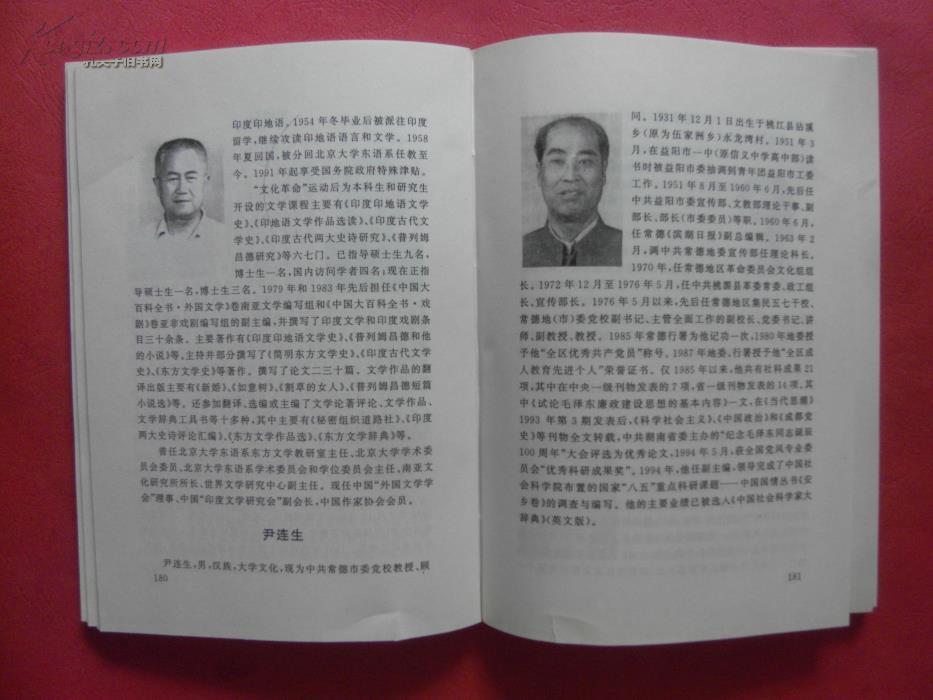 Kongfz.com
孔夫子旧书网
印度印地语。1954 年冬毕业后被派往印度
留学,继续攻读印地语语言和文学。1958
年夏回国,被分回北京大学东语系任教至
今。1991 年起享受国务院政府特殊津贴。
“文化革命”运动后为本科生和研究生
开设的文学课程主要有《印度印地语文学
史》、《印地语文学作品选读》、《印度古代文
学史》、《印度古代两大史诗研究》、《普列姆
昌德研究》等六七门。已指导硕士生九名,
博士生一名,国内访问学者四名;现在正指
导硕士生一名,博士生三名。1979 年和 1983 年先后担任《中国大
百科全书·外国文学》卷南亚文学编写组和《中国大百科全书·戏
剧》卷亚非戏剧编写组的副主编,并撰写了印度文学和印度戏剧条
目三十余条。主要著作有《印度印地语文学史》、《普列姆昌德和他
的小说》等。主持并部分撰写了《简明东方文学史》、《印度古代文学
史》、《东方文学史》等著作。撰写了论文二三十篇。文学作品的翻
译出版主要有《新婚》、《如意树》、《割草的女人》、《普列姆昌德短篇
小说选》等。还参加翻译、选编或主编了文学论著评论、文学作品、
文学辞典工具书等十多种,其中主要有《秘密组织道路社》、《印度
两大史诗评论汇编》、《东方文学作品选》、《东方文学辞典》等。
曾任北京大学东语系东方文学教研室主任、北京大学学术委
员会委员、北京大学东语系学术委员会和学位委员会主任、南亚文
化研究所所长、世界文学研究中心副主任。现任中国“外国文学学
会”理事、中国“印度文学研究会”副会长,中国作家协会会员。
尹连生
尹连生,男,汉族,大学文化,现为中共常德市委党校教授、顾
180
问。1931 年 12 月 1 日出生于桃江县拈溪
乡(原为伍家洲乡)永龙湾村。1951 年 3
月,在益阳市一中(原信义中学高中部)读
书时被益阳市委抽调到青年团益阳市工委
工作。1951 年 8 月至 1960 年 6 月,先后任
中共益阳市委宣传部、文教部理论干事、副
部长、部长(市委委员)等职。1960 年 6 月,
任常德《滨湖日报》副总编辑。1963 年 2
月,调中共常德地委宣传部任理论科长。
1970 年,任常德地区革命委员会文化组组
长。1972 年 12 月至 1976 年 5 月,任中共桃源县革委常委、政工组
长、宣传部长。1976 年 5 月以来,先后任常德地区集民五七干校、
常德地(市)委党校副书记、主管全面工作的副校长、党委书记、讲
师、副教授、教授。1985 年常德行署为他记功一次,1980 年地委授
予他“全区优秀共产党员”称号。1987 年地委、行署授予他“全区成
人教育先进个人”荣誉证书。仅 1985 年以来,他共有社科成果 21
项,其中在中央一级刊物发表的 7 项,省一级刊物发表的 14 项。其
中《试论毛泽东廉政建设思想的基本内容》一文,在《当代思潮》
1993 年第 3 期发表后,《科学社会主义》、《中国政治》和《成都党
史》等刊物全文转载,中共湖南省委主办的“纪念毛泽东同志诞辰
100 周年”大会评选为优秀论文,1994 年 5 月,获全国党风专业委
员会“优秀科研成果奖”。1994 年,他任副主编,领导完成了中国社
会科学院布置的国家“八五”重点科研课题——中国国情丛书《安
乡卷》的调查与编写。他的主要业绩已被选入《中国社会科学家大
辞典》(英文版)。
181